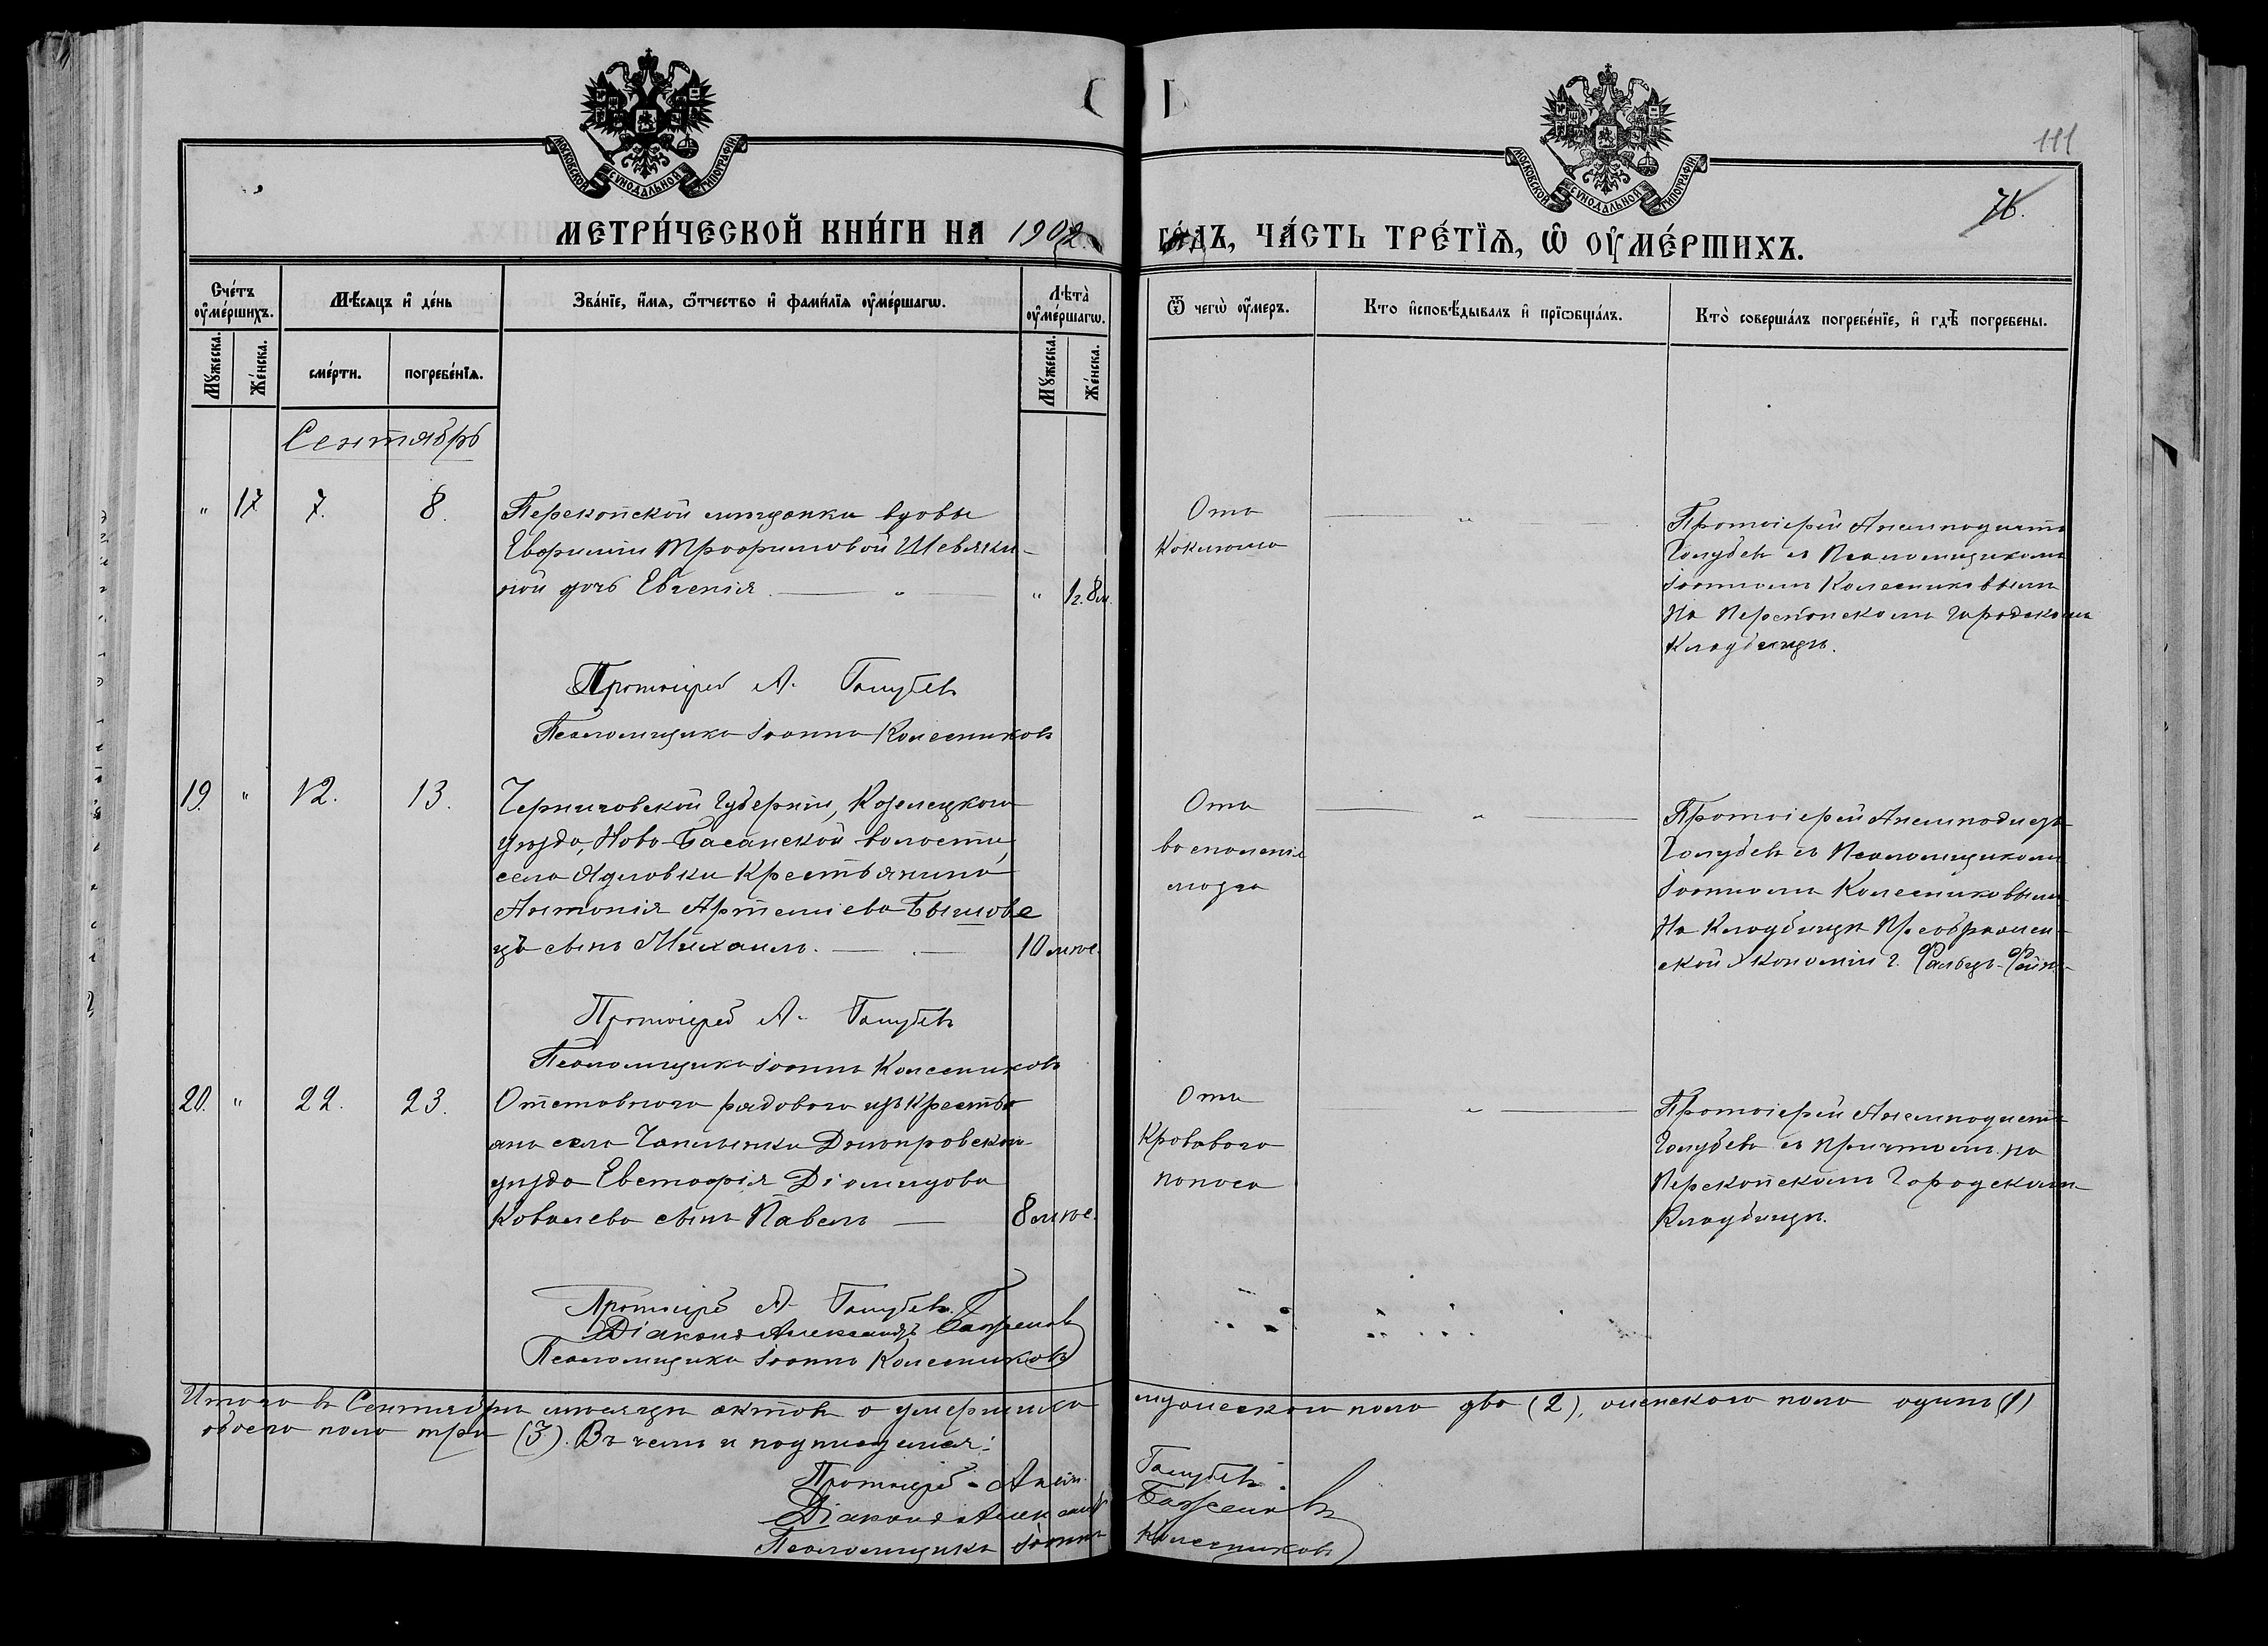 МОСКОВСКОЙ СѴНОДАЛЬНОЙ ТИПОГРАФІИ
МОСКОВСКОЙ СѴНОДАЛЬНОЙ ТИПОГРАФІИ
111
76.
МЕТРИ́ЧЕСКОЙ КНИ́ГИ НА 1902 ГО́ДЪ, ЧА́СТЬ ТРЕ́ТЇѦ, Ѿ ОУ҆МЕ́РШИХЪ.
Сче́тъ оу҆ме́ршихъ.
Мѣ́сяцъ и҆ де́нь
Зва́нїе, и҆́мя, ѻ҆́тчество и҆ фами́лїя оу҆ме́ршагѡ.
Лѣта̀ оу҆ме́ршагѡ.
Ѿ чегѡ̀ оу҆́меръ.
Кто и҆сповѣ́дывалъ и҆ прїѡбща́лъ.
Кто̀ соверша́лъ погребе́нїе, и҆ гдѣ̀ погребены.
Мꙋ́жеска.
Же́нска.
сме́рти.
погребе́нїя.
Мꙋ́жеска.
Же́нска.
Сентябрь
" 17 7. 8.
Перекопской мѣщанки вдовы
Евфиміи Трофимовой Шевяки-
ной дочь Евгенія. — " —
" 1г. 8м.
Отъ
Коклюша
— " —
Протоіерей Анемподистъ
Голубевъ съ Псаломщикомъ
Іоанномъ Колесниковымъ
На Перекопскомъ городскомъ
Кладбищѣ.
Протоіерей А. Голубевъ
Псаломщикъ Іоаннъ Колесниковъ
19. " 12. 13.
Черниговской Губерніи, Козелецкого
уѣзда, Ново-Басанской волости,
села Ядловки Крестьянина
Антонія Артеміева Бышове
цъ сынъ Михаилъ. — . —
10 мѣс.
Отъ
воспаленія
мозга
— " —
Протоіерей Анемподистъ
Голубевъ съ Псаломщикомъ
Іоанномъ Колесниковымъ
На Кладбищѣ Преображен-
ской экономіи г. Фальцъ-Фейнъ-
Протоіерей А. Голубевъ
Псаломщикъ Іоаннъ Колесниковъ
20. " 22. 23.
Отставного рядового изъ Крестья
анъ села Чаплинки Днѣпровскаго
уѣзда Евстафія Діомидова
Ковалева сынъ Павелъ —
8 мѣс.
Отъ
Кроваваго
поноса
" —
Протоіерей Анемподистъ
Голубевъ съ причтомъ на
Перекопскомъ Городскомъ
Кладбищѣ.
Протоіерей А. Голубевъ.
Діаконъ Александръ Баженовъ
Псаломщикъ Іоаннъ Колесниковъ
Итого въ Сентябрѣ мѣсяцѣ актовъ о умершихъ мужескаго пола два (2), женскаго пола одинъ (1)
обоего пола три (3). Въ чемъ и подписуемся:
Протоіерей Анем. Голубевъ.
Діаконъ Александръ Баженовъ
Псаломщикъ Іоаннъ Колесниковъ